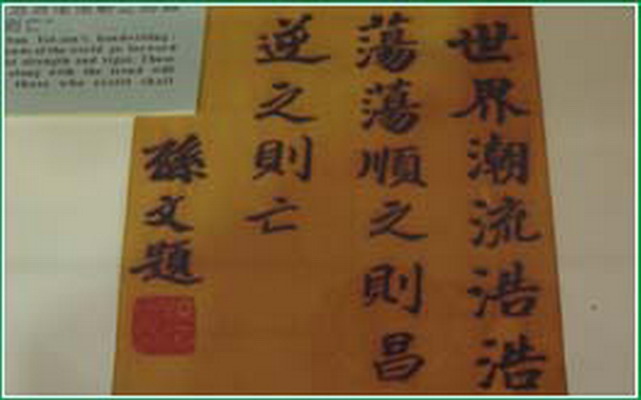 世界潮流浩浩
蕩蕩順之則昌
逆之則亡
孫文題
Yat-sen's handwriting:
of the world go forward
strength and vigor. Those
along with the trend will
those who resist shall